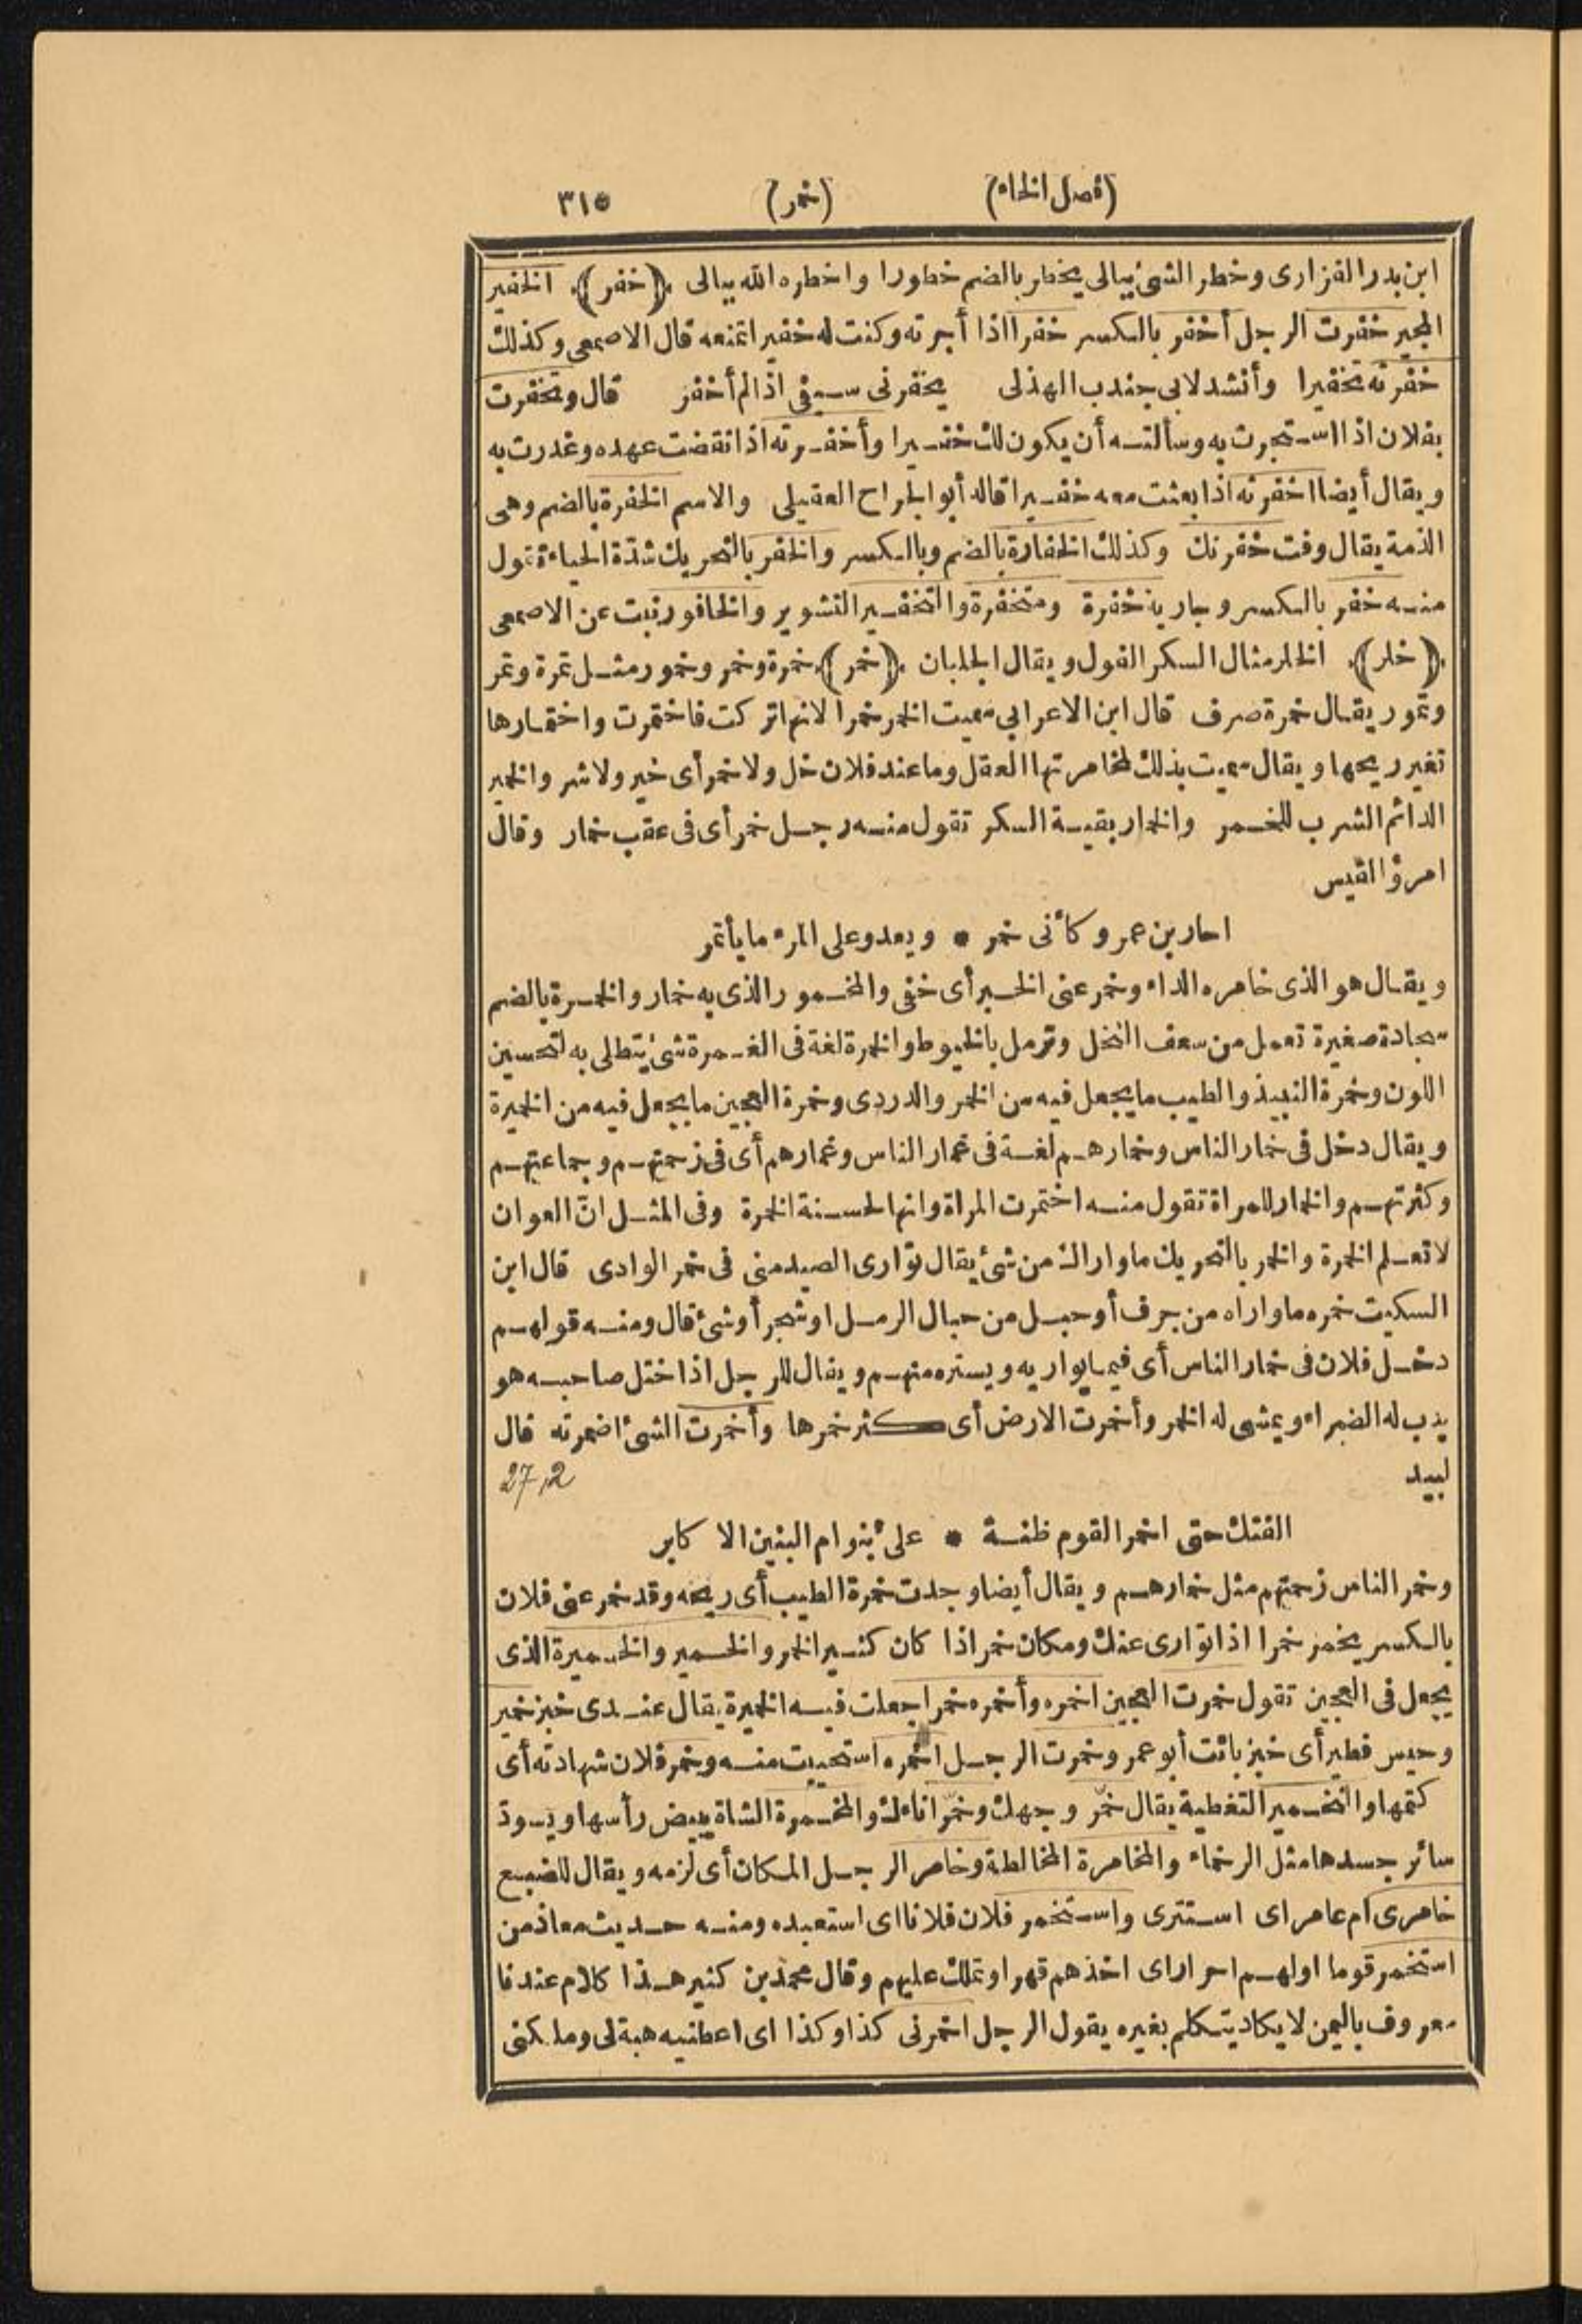 (فصل الخاء) (خمر) ٣١٥
ابن بدر الفزارى وخطر الشئ ببالى يخطر بالضم خطورا واخطره الله ببالى ﴿خفر﴾ الخفير
المجير خفرت الرجل أخفر بالكسر خفرا اذا أجرته وكنت له خفيرا تمنعه قال الاصمعى وكذلك
خفرته تخفيرا وأنشد لابى جندب الهذلى يخفرنى سيفى اذا لم أخفر قال وتخفرت
بفلان اذا استجرت به وسألته أن يكون لك خفيرا وأخفرته اذا نقضت عهده وغدرت به
ويقال أيضا اخفرته اذا بعثت معه خفيرا قاله أبو الجراح العقيلى والاسم الخفرة بالضم وهى
الذمة يقال وفت خفرتك وكذلك الخفارة بالضم وبالكسر والخفر بالتحريك شدّة الحياء تقول
منه خفر بالكسر وجارية خفرة ومتخفرة والتخفير التشوير والخافور نبت عن الاصمعى
﴿خلر﴾ الخلر مثال السكر الفول ويقال الجلبان ﴿خمر﴾ خمرة وخمر وخمور مثل تمرة وتمر
وتمور يقال خمرة صرف قال ابن الاعرابى سميت الخمر خمرا لانها تركت فاختمرت واختمارها
تغير ريحها ويقال سميت بذلك لمخامرتها العقل وما عند فلان خل ولا خمر أى خير ولا شر والخمير
الدائم الشرب للخمر والخمار بقية السكر تقول منه رجل خمر أى فى عقب خمار وقال
امرؤ القيس
احار بن عمرو كأنى خمر * ويعدو على المرء ما يأتمر
ويقال هو الذى خامره الداء وخمر عنى الخبر أى خفى والمخمور الذى به خمار والخمرة بالضم
سجادة صغيرة تعمل من سعف النخل وترمل بالخيوط والخمرة لغة فى الغمرة شئ يتطلى به لتحسين
اللون وخمرة النبيذ والطيب ما يجعل فيه من الخمر والدردى وخمرة العجين ما يجعل فيه من الخميرة
ويقال دخل فى خمار الناس وخمارهم لغة فى غمار الناس وغمارهم أى فى زحمتهم وجماعتهم
وكثرتهم والخمار للمراة تقول منه اختمرت المراة وانها لحسنة الخمرة وفى المثل انّ العوان
لا تعلم الخمرة والخمر بالتحريك ما واراك من شئ يقال توارى الصيد منى فى خمر الوادى قال ابن
السكيت خمره ما واراه من جرف أو حبل من حبال الرمل او شجر أو شئ قال ومنه قولهم
دخل فلان فى خمار الناس أى فيما يواريه ويستره منهم ويقال للرجل اذا ختل صاحبه هو
يدب له الضراء ويمشى له الخمر وأخمرت الارض أى كثر خمرها وأخمرت الشئ اضمرته قال
لبيد 27,2
الفتك حتى اخمر القوم ظنة * على بنو ام البنين الا كابر
وخمر الناس زحمتهم مثل خمارهم ويقال أيضا وجدت خمرة الطيب أى ريحه وقد خمر عنى فلان
بالكسر يخمر خمرا اذا توارى عنك ومكان خمر اذا كان كثير الخمر والخمير والخميرة الذى
يجعل فى العجين تقول خمرت العجين اخمره وأخمره خمرا جعلت فيه الخميرة يقال عندى خبز خمير
وحيس فطير أى خبز بائت أبو عمر وخمرت الرجل اخمره استحييت منه وخمر فلان شهادته أى
كتمها والتخمير التغطية يقال خمّر وجهك وخمّر اناءك والمخمرة الشاة يبيض رأسها ويسودّ
سائر جسدها مثل الرخماء والمخامرة المخالطة وخامر الرجل المكان أى لزمه ويقال للضبع
خامرى ام عامر اى استترى واستخمر فلان فلانا اى استعبده ومنه حديث معاذ من
استخمر قوما اولهم احرار اى اخذهم قهرا وتملك عليهم وقال محمد بن كثير هذا كلام عندنا
معروف باليمن لا يكاد يتكلم بغيره يقول الرجل اخمرنى كذا وكذا اى اعطنيه هبة لى وملكنى